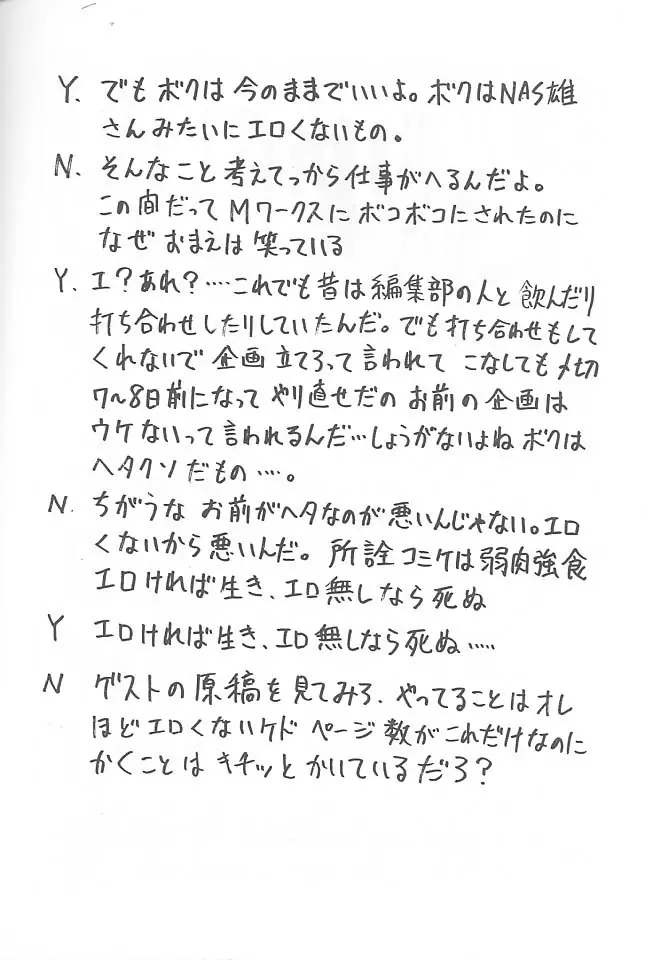 Y. でもボクは今のままでいいよ。ボクはNAS雄
さんみたいにエロくないもの。
N. そんなこと考えてっから仕事がへるんだよ。
この間だってMワークスにボコボコにされたのに
なぜおまえは笑っている
Y. エ?あれ?‥‥これでも昔は編集部の人と飲んだり
打ち合わせしたりしていたんだ。でも打ち合わせもして
くれないで企画立てろって言われてこなしても〆切
7～8日前になってやり直せだのお前の企画は
ウケないって言われるんだ…しょうがないよねボクは
ヘタクソだもの‥‥。
N. ちがうなお前がヘタなのが悪いんじゃない。エロ
くないから悪いんだ。所詮コミケは弱肉強食
エロければ生き、エロ無しなら死ぬ
Y エロければ生き、エロ無しなら死ぬ‥‥‥
N ゲストの原稿を見てみろ、やってることはオレ
ほどエロくないケドページ数がこれだけなのに
かくことはキチッとかいているだろ?